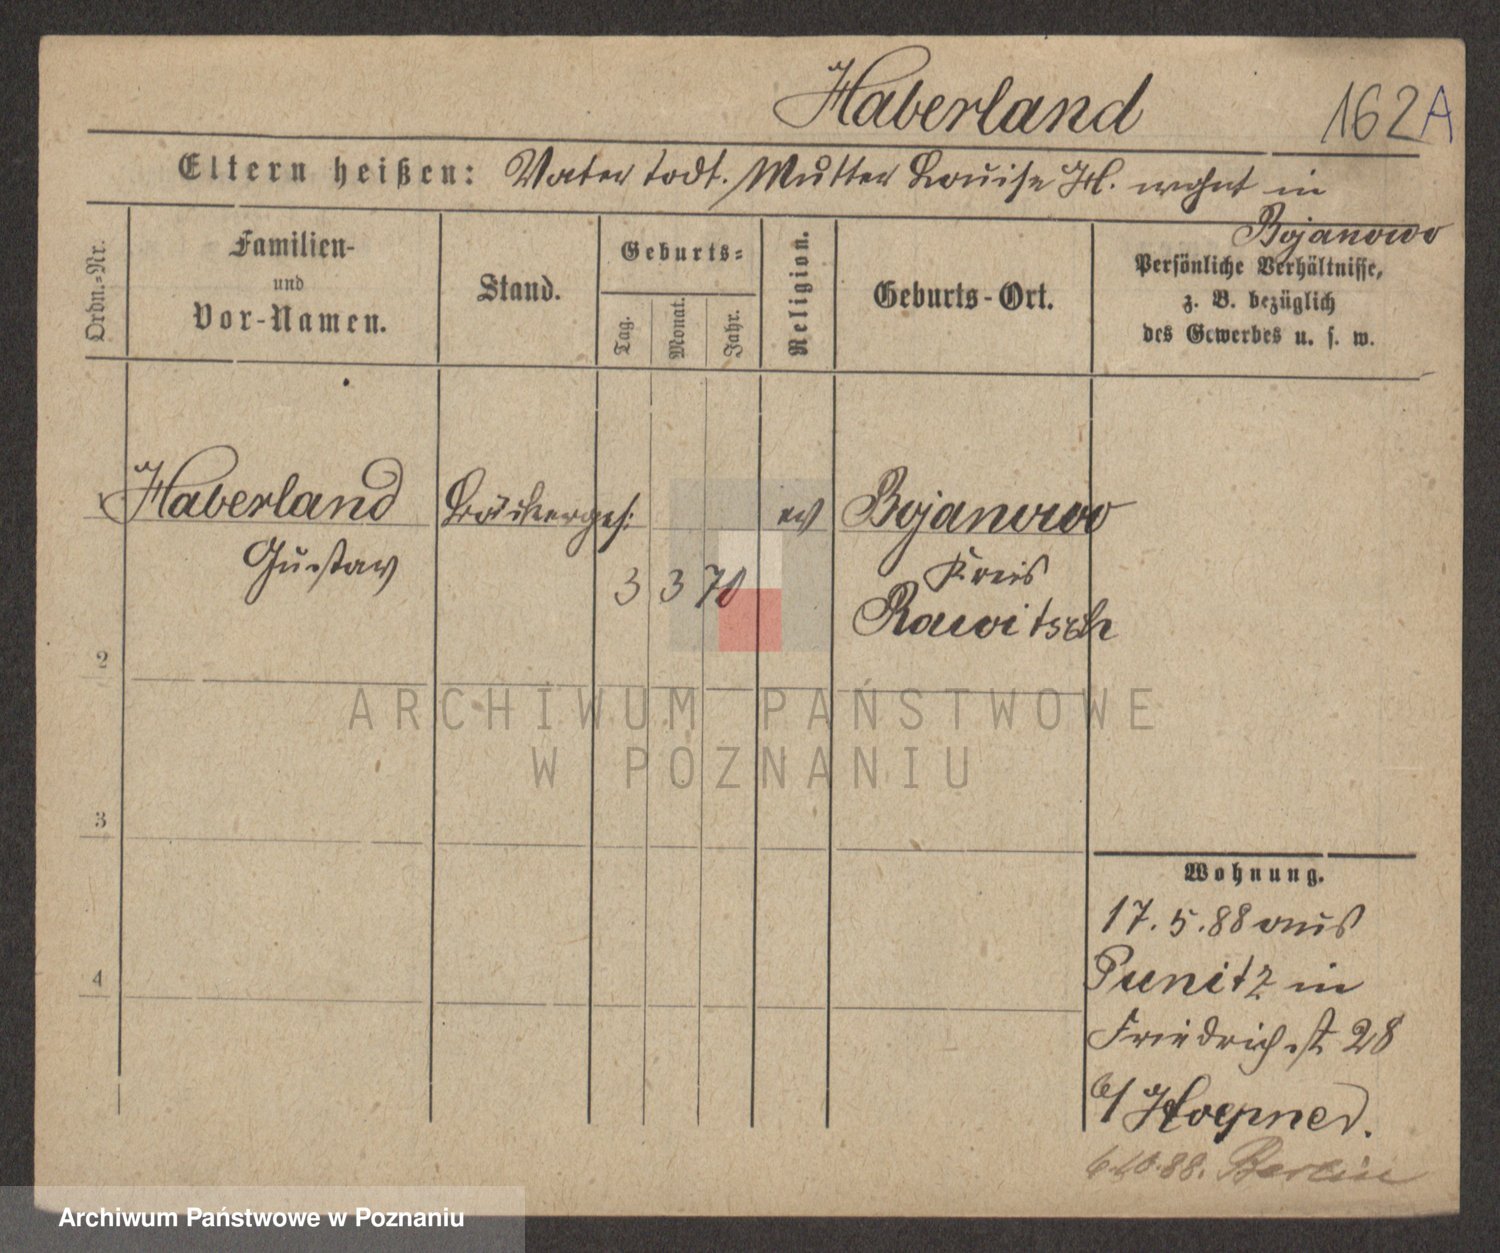 Haberland
162A
Eltern heißen: Vater todt. Mutter Louise H. wohnt in
Bojanowo
Ordn.-Nr.
Familien-
und
Vor-Namen.
Stand.
Geburts-
Tag.
Monat.
Jahr.
Religion.
Geburts-Ort.
Persönliche Verhältnisse,
z. B. bezüglich
des Gewerbes u. s. w.
1 Haberland Bäckerges. ev Bojanowo
Gustav
3 3 70
Kreis
Rawitsch
2
3
4
ARCHIWUM PAŃSTWOWE
W POZNANIU
Wohnung.
17.5.88 aus
Punitz in
Friedrichst 28
b/ Hoepner.
6.10.88. Berlin
Archiwum Państwowe w Poznaniu